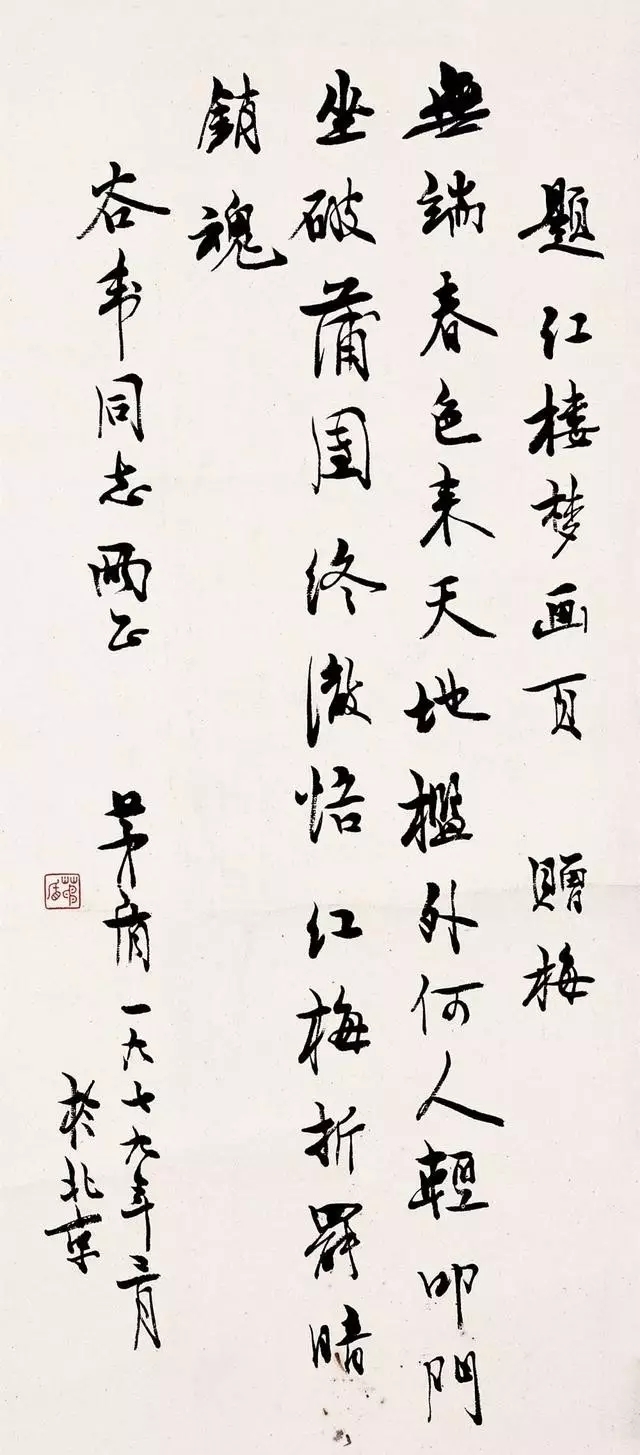 題红楼梦画页 贈梅
無端春色来天地檻外何人輕叩門
坐破蒲團终澈悟红梅折罢暗
銷魂
谷韦同志兩正
茅盾一九七九年二月
於北京
茅盾